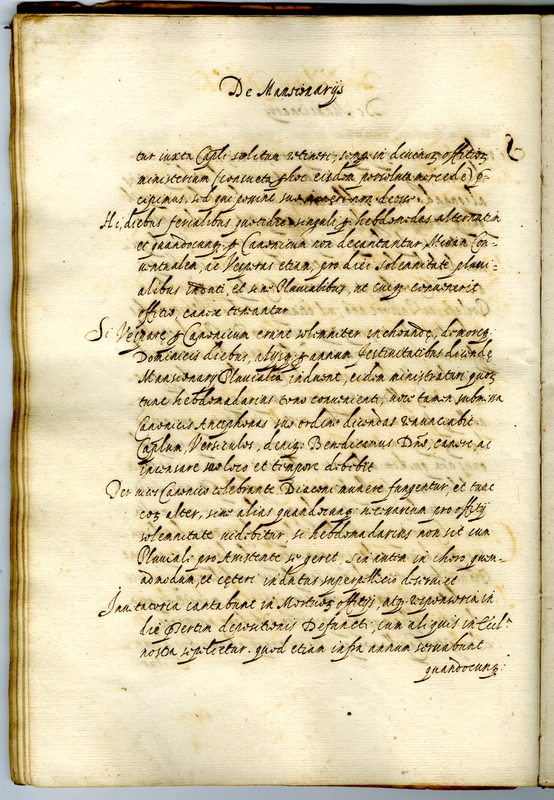 De Mansionarijs
tur iuxta Capli solitum retineri, semp in divinoꝝ offitioꝝ
ministerium (consueta p hoc eisdem persoluta mercede) p-
cipimus, sed qui coeunt suo muneri non desse.
Hi, diebus ferialibus quotidie singuli p hebdomodas alternatim
et quandocunq p Canonicum non decantantur, Missam Con-
ventualem, ac Vesperas etiam, pro diei solemnitate pluvi-
alibus induti, et sine Pluvialibus, ut cuiq convenerit
offitio, canere teneantur
Si Vesperę p Canonicum erunt solemniter inchoandę, de more
Dominicis diebus, alijsq p annum festivitatibus dicendę
Mansionarij Pluvialia induent, eidem ministraturi quoꝝ
tunc hebdomadarius tono convenienti, voce tamen submissa
Canonicis Antiphonas suo ordine dicendas renunciabit
Caplum, Versiculos, deniq Benedicamus Dño, canere, ac
incensare suo loco et tempore debebit
Per vices Canonico celebrante, Diaconi munere fungentur, et tunc
eoꝝ alter, sive alias quandocunq necessarium pro offitij
solemnitate videbitur, si hebdomadarius non sit cum
Pluviali pro Assistente se geret, sin autem in choro quem-
admodum, et cęteri indutus superpelliceo deserviet
Invitatoria cantabunt in Mortuoꝝ offitijs, atq responsoria in
die psertim depositionis Defuncti, cum aliquis in Eccl.ª
nostra sepelietur. quod etiam infra annum servabunt
quandocunq: